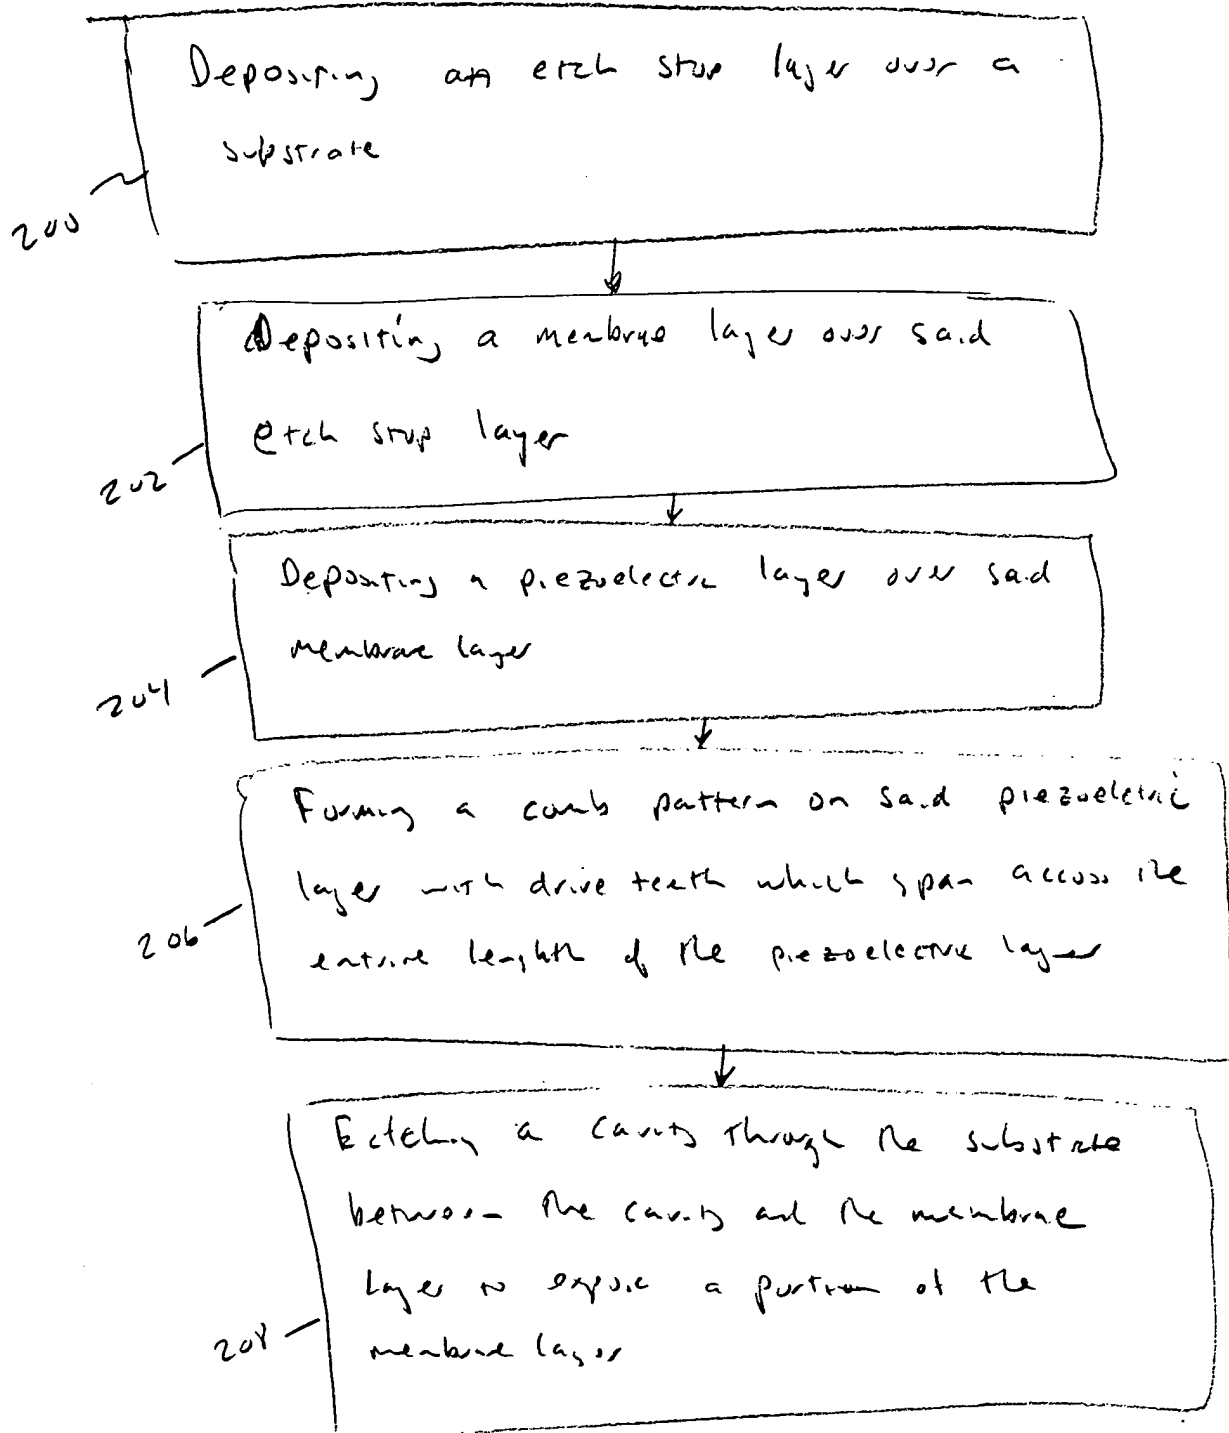 Depositing an etch stop layer over a
substrate
200
Depositing a membrane layer over said
etch stop layer
202
Depositing a piezoelectric layer over said
membrane layer
204
Forming a comb pattern on said piezoeletric
layer with drive teeth which span across the
entire length of the piezoelectric layer
206
Ectching a cavity through the substrate
between the cavity and the membrane
layer to expose a portion of the
membrane layer
208